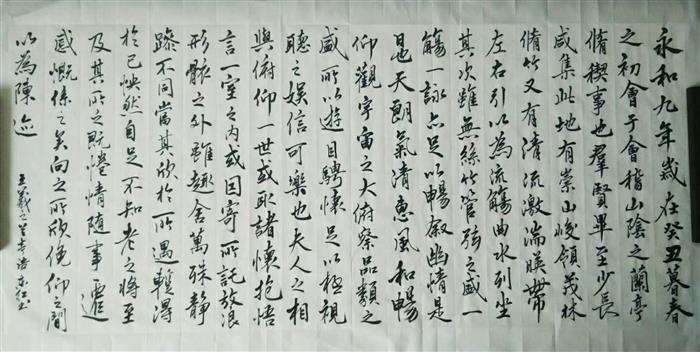 永和九年歲在癸丑暮春
之初會于會稽山陰之蘭亭
脩禊事也羣賢畢至少長
咸集此地有崇山峻領茂林
脩竹又有清流激湍暎帶
左右引以為流觴曲水列坐
其次雖無絲竹管弦之盛一
觴一詠亦足以暢叙幽情是
日也天朗氣清惠風和暢
仰觀宇宙之大俯察品類之
盛所以遊目騁懷足以極視
聽之娛信可樂也夫人之相
與俯仰一世或取諸懷抱悟
言一室之內或因寄所託放浪
形骸之外雖趣舍萬殊靜
躁不同當其欣於所遇暫得
於己怏然自足不知老之將至
及其所之既惓情隨事遷
感慨係之矣向之所欣俛仰之間
以為陳迹
王羲之